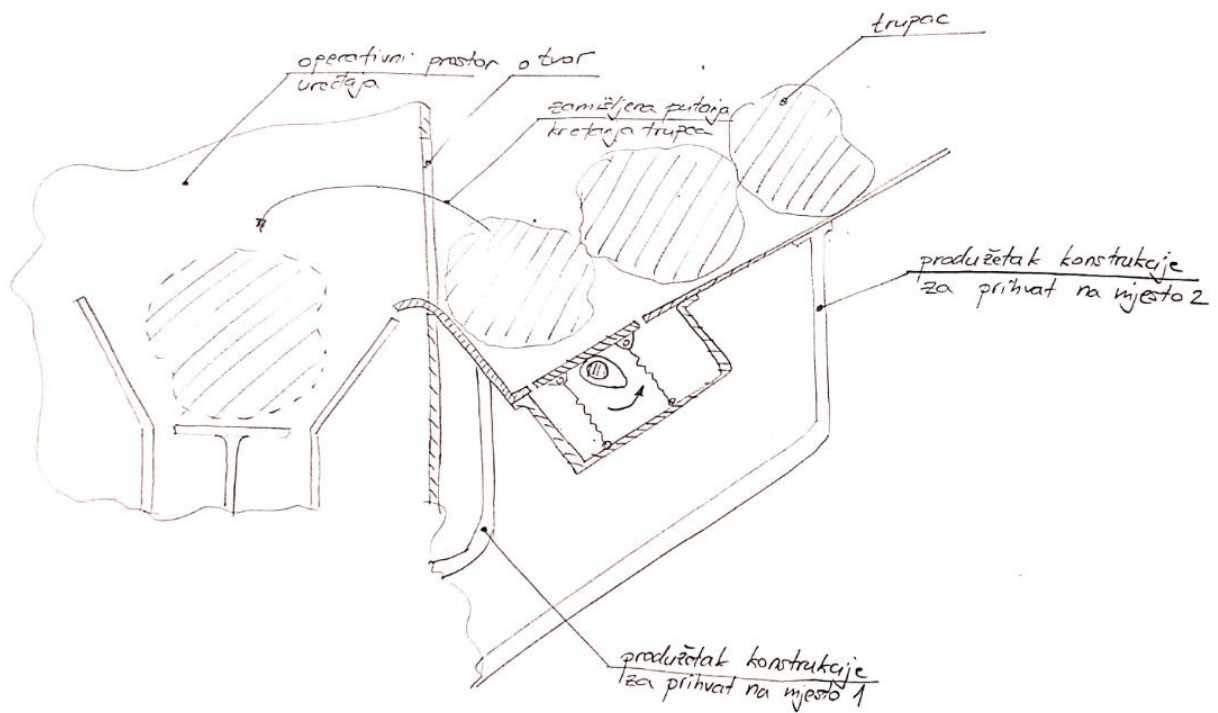 trupac
operativni prostor
uređaja
otvor
zamišljena putanja
kretanja trupca
produžetak konstrukcije
za prihvat na mjesto 2
produžetak konstrukcije
za prihvat na mjesto 1